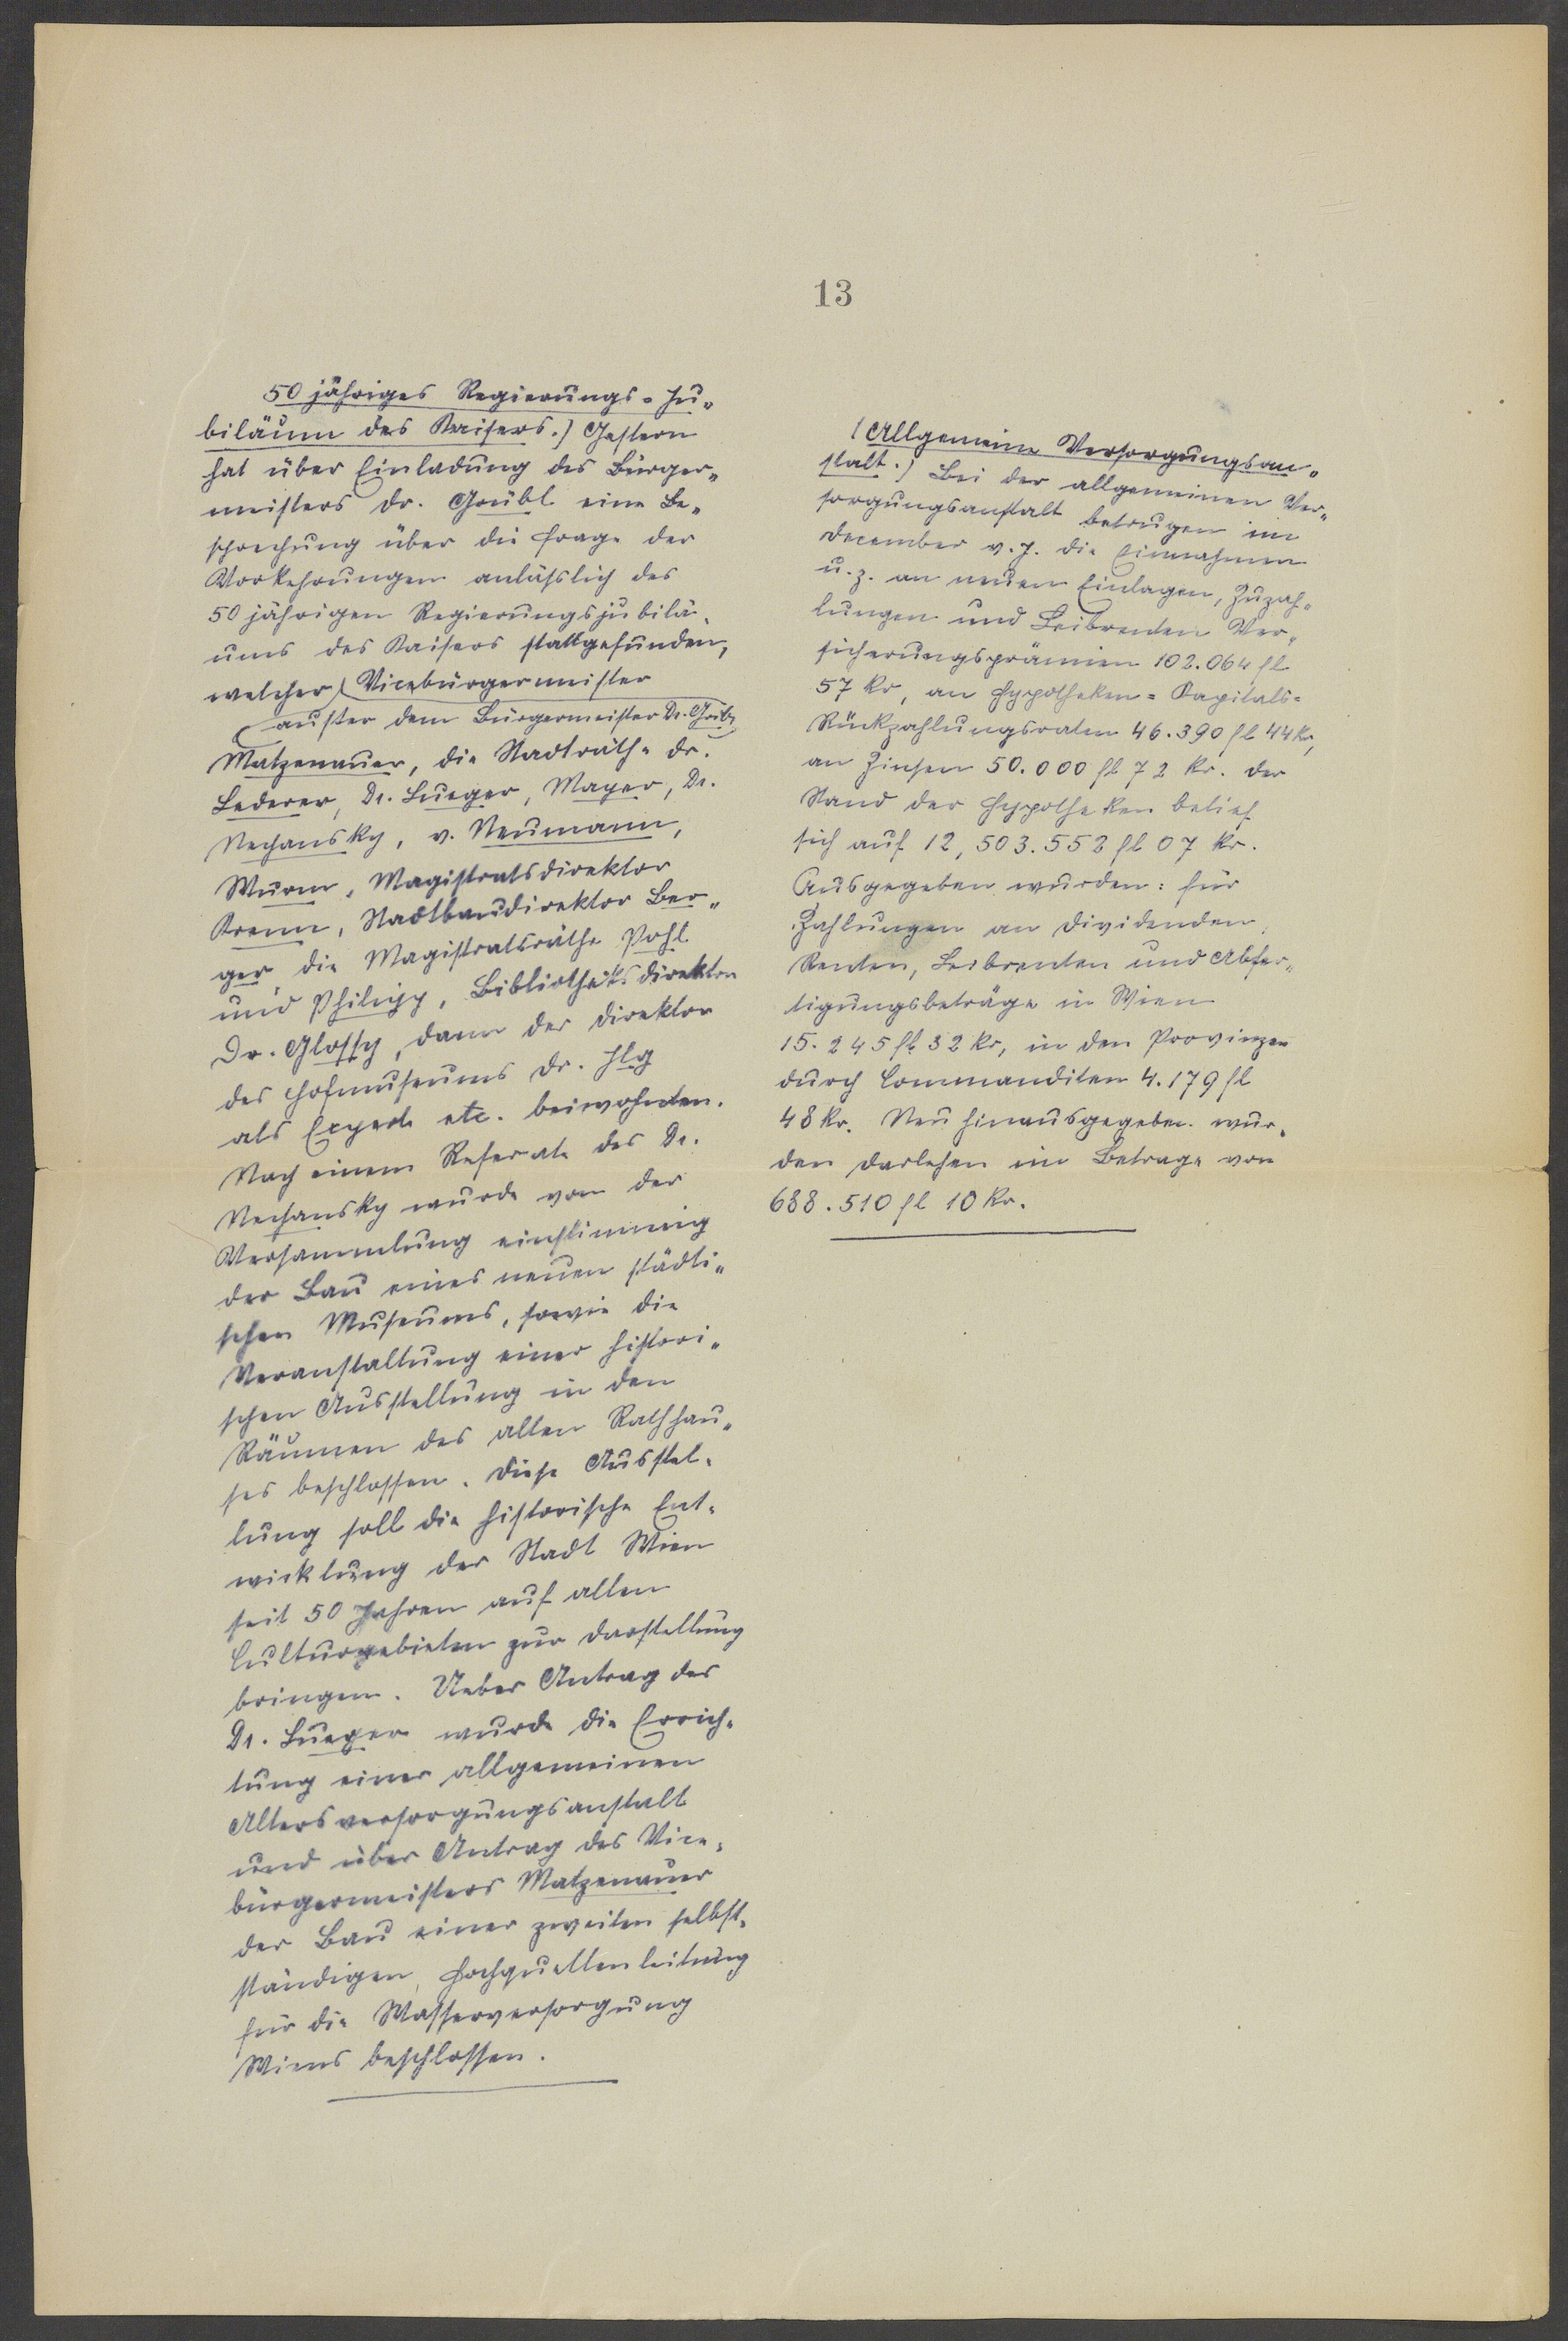 13
50 jähriges Regierungs-Ju-
biläum des Kaisers.) Gestern
hat über Einladung des Bürger-
meisters Dr. Grübl eine Be-
sprechung über die Frage der
Vorkehrungen anläßlich des
50 jährigen Regierungsjubilä-
ums des Kaisers stattgefunden,
welcher Vicebürgermeister
außer dem Bürgermeister Dr. Grübl
Matzenauer, die Stadträthe Dr.
Lederer, Dr. Lueger, Mayer, Dr.
Nechansky, v. Neumann,
Wurm, Magistratsdirektor
Krenn, Stadtbaudirektor Ber-
ger, die Magistratsräthe Pohl
und Philipp, Bibliotheksdirektor
Dr. Glossy, dann der Direktor
des Hofmuseums Dr. Ilg
als Experte etc. beiwohnten.
Nach einem Referate des Dr.
Nechansky wurde von der
Versammlung einstimmig
der Bau eines neuen städti-
schen Museums, sowie die
Veranstaltung einer histori-
schen Ausstellung in den
Räumen des alten Rathhau-
ses beschlossen. Diese Ausstel-
lung soll die historische Ent-
wicklung der Stadt Wien
seit 50 Jahren auf allen
Culturgebieten zur Darstellung
bringen. Ueber Antrag des
Dr. Lueger wurde die Errich-
tung einer allgemeinen
Altersversorgungsanstalt
und über Antrag des Vice-
bürgermeisters Matzenauer
der Bau einer zweiten selbst-
ständigen Hochquellenleitung
für die Wasserversorgung
Wiens beschlossen.
(Allgemeine Versorgungsan-
stalt.) Bei der allgemeinen Ver-
sorgungsanstalt betrugen im
December v. J. die Einnahmen
u. z. an neuen Einlagen, Zuzah-
lungen und Leibrenten Ver-
sicherungsprämien 102.064 fl
57 kr, an Hypotheken-Kapitals-
Rückzahlungsraten 46.390 fl 44 kr,
an Zinsen 50.000 fl 72 kr. Der
Stand der Hypotheken belief
sich auf 12,503.552 fl 07 kr.
Ausgegeben wurden: für
Zahlungen an Dividenden,
Renten, Leibrenten und Abfer-
tigungsbeträge in Wien
15.245 fl 32 kr, in den Provinzen
durch Commanditen 4.179 fl
48 kr. Neu hinausgegeben wur-
den Darlehen im Betrage von
688.510 fl 10 kr.